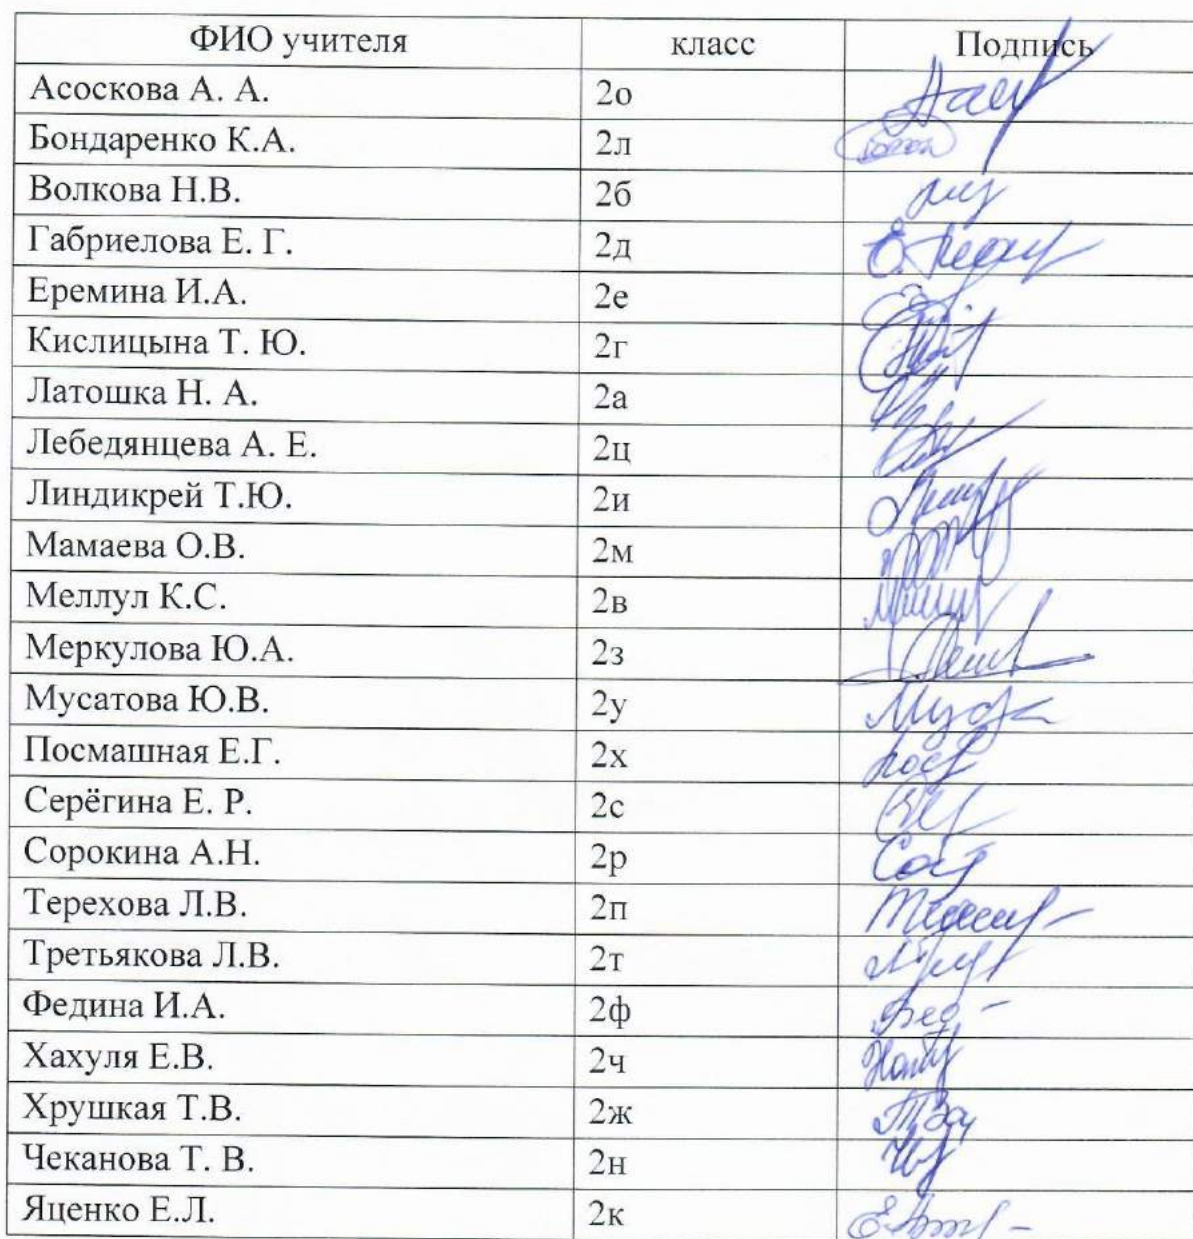 ФИО учителя класс Подпись
Асоскова А. А. 2о
Бондаренко К.А. 2л
Волкова Н.В. 2б
Габриелова Е. Г. 2д
Еремина И.А. 2е
Кислицына Т. Ю. 2г
Латошка Н. А. 2а
Лебедянцева А. Е. 2ц
Линдикрей Т.Ю. 2и
Мамаева О.В. 2м
Меллул К.С. 2в
Меркулова Ю.А. 2з
Мусатова Ю.В. 2у
Посмашная Е.Г. 2х
Серёгина Е. Р. 2с
Сорокина А.Н. 2р
Терехова Л.В. 2п
Третьякова Л.В. 2т
Федина И.А. 2ф
Хахуля Е.В. 2ч
Хрушкая Т.В. 2ж
Чеканова Т. В. 2н
Яценко Е.Л. 2к